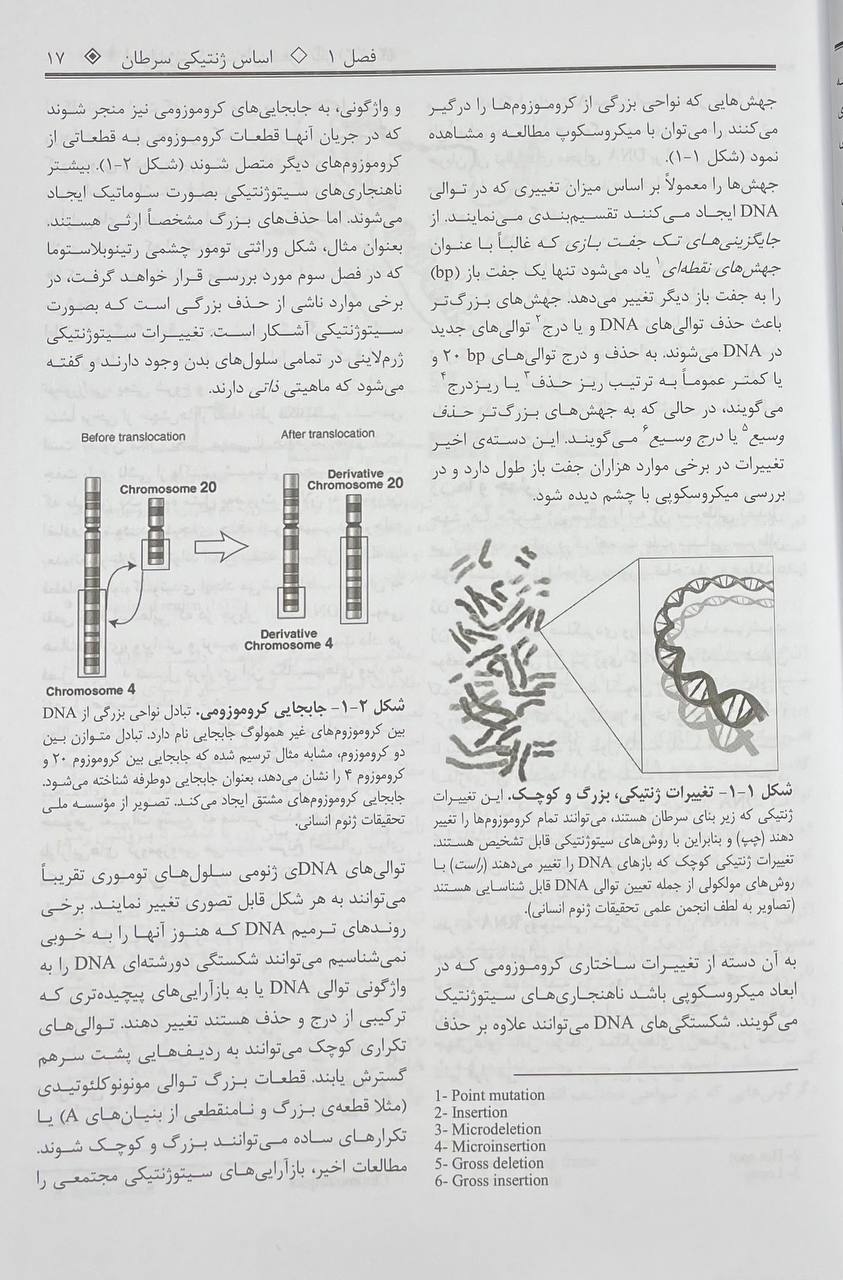 فصل ۱ ◇ اساس ژنتیکی سرطان ◈ ۱۷
جهش‌هایی که نواحی بزرگی از کروموزوم‌ها را درگیر
می‌کنند را می‌توان با میکروسکوپ مطالعه و مشاهده
نمود (شکل ۱-۱).
جهش‌ها را معمولاً بر اساس میزان تغییری که در توالی
DNA ایجاد می‌کنند تقسیم‌بندی می‌نمایند. از
جایگزینی‌های تک جفت بازی که غالباً با عنوان
جهش‌های نقطه‌ای۱ یاد می‌شود تنها یک جفت باز (bp)
را به جفت باز دیگر تغییر می‌دهد. جهش‌های بزرگ‌تر
باعث حذف توالی‌های DNA و یا درج۲ توالی‌های جدید
در DNA می‌شوند. به حذف و درج توالی‌های ۲۰ bp و
یا کمتر عموماً به ترتیب ریز حذف۳ یا ریزدرج۴
می‌گویند، در حالی که به جهش‌های بزرگ‌تر حذف
وسیع۵ یا درج وسیع۶ می‌گویند. این دسته‌ی اخیر
تغییرات در برخی موارد هزاران جفت باز طول دارد و در
بررسی میکروسکوپی با چشم دیده شود.
شکل ۱-۱- تغییرات ژنتیکی، بزرگ و کوچک. این تغییرات
ژنتیکی که زیر بنای سرطان هستند، می‌توانند تمام کروموزوم‌ها را تغییر
دهند (چپ) و بنابراین با روش‌های سیتوژنتیکی قابل تشخیص هستند.
تغییرات ژنتیکی کوچک که بازهای DNA را تغییر می‌دهند (راست) با
روش‌های مولکولی از جمله تعیین توالی DNA قابل شناسایی هستند
(تصاویر به لطف انجمن علمی تحقیقات ژنوم انسانی).
به آن دسته از تغییرات ساختاری کروموزومی که در
ابعاد میکروسکوپی باشد ناهنجاری‌های سیتوژنتیک
می‌گویند. شکستگی‌های DNA می‌توانند علاوه بر حذف
1- Point mutation
2- Insertion
3- Microdeletion
4- Microinsertion
5- Gross deletion
6- Gross insertion
و واژگونی، به جابجایی‌های کروموزومی نیز منجر شوند
که در جریان آنها قطعات کروموزومی به قطعاتی از
کروموزوم‌های دیگر متصل شوند (شکل ۲-۱). بیشتر
ناهنجاری‌های سیتوژنتیکی بصورت سوماتیک ایجاد
می‌شوند. اما حذف‌های بزرگ مشخصاً ارثی هستند.
بعنوان مثال، شکل وراثتی تومور چشمی رتینوبلاستوما
که در فصل سوم مورد بررسی قرار خواهد گرفت، در
برخی موارد ناشی از حذف بزرگی است که بصورت
سیتوژنتیکی آشکار است. تغییرات سیتوژنتیکی
ژرم‌لاینی در تمامی سلول‌های بدن وجود دارند و گفته
می‌شود که ماهیتی ذاتی دارند.
Before translocation
After translocation
Chromosome 20
Derivative
Chromosome 20
Derivative
Chromosome 4
Chromosome 4
شکل ۲-۱- جابجایی کروموزومی. تبادل نواحی بزرگی از DNA
بین کروموزوم‌های غیر همولوگ جابجایی نام دارد. تبادل متوازن بین
دو کروموزوم، مشابه مثال ترسیم شده که جابجایی بین کروموزوم ۲۰ و
کروموزوم ۴ را نشان می‌دهد، بعنوان جابجایی دوطرفه شناخته می‌شود.
جابجایی کروموزوم‌های مشتق ایجاد می‌کند. تصویر از مؤسسه ملی
تحقیقات ژنوم انسانی.
توالی‌های DNAی ژنومی سلول‌های توموری تقریباً
می‌توانند به هر شکل قابل تصوری تغییر نمایند. برخی
روندهای ترمیم DNA که هنوز آنها را به خوبی
نمی‌شناسیم می‌توانند شکستگی دورشته‌ای DNA را به
واژگونی توالی DNA یا به بازآرایی‌های پیچیده‌تری که
ترکیبی از درج و حذف هستند تغییر دهند. توالی‌های
تکراری کوچک می‌توانند به ردیف‌هایی پشت سرهم
گسترش یابند. قطعات بزرگ توالی مونونوکلئوتیدی
(مثلا قطعه‌ی بزرگ و نامنقطعی از بنیان‌های A) یا
تکرارهای ساده می‌توانند بزرگ و کوچک شوند.
مطالعات اخیر، بازآرایی‌های سیتوژنتیکی مجتمعی را